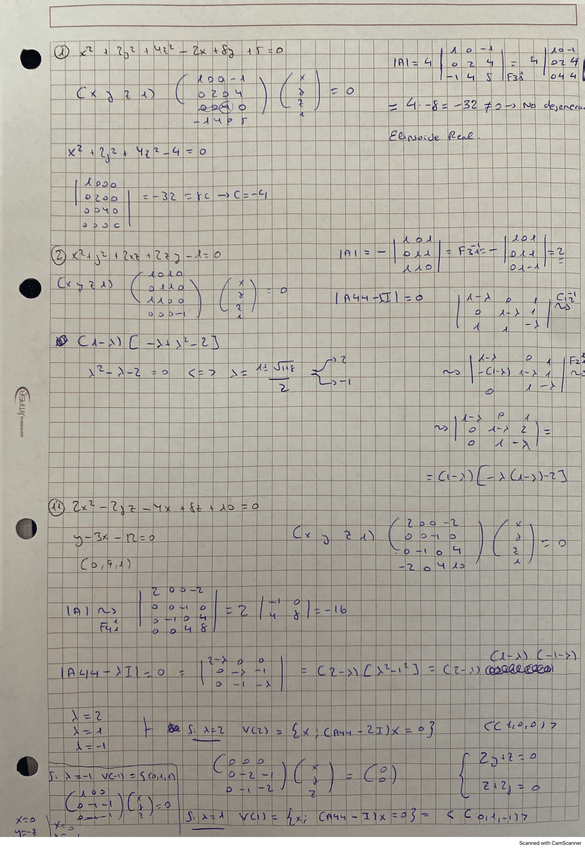 ① x² + 2y² + 4z² - 2x + 8y + 5 = 0
(x y z 1) ( 1 0 0 -1
0 2 0 4
0 0 4 0
-1 4 0 5 ) ( x
y
z
1 ) = 0
|A| = 4 | 1 0 -1
0 2 4
-1 4 5 | = 4 | 1 0 -1
0 2 4
0 4 4 |
= 4 · -8 = -32 ≠ 0 → No degenera
Elipsoide Real.
x² + 2y² + 4z² - 4 = 0
| 1 0 0 0
0 2 0 0
0 0 4 0
0 0 0 C | = -32 = 8C → C = -4
② x² + y² + 2xz + 2zy - 1 = 0
(x y z 1) ( 1 0 1 0
0 1 1 0
1 1 0 0
0 0 0 -1 ) ( x
y
z
1 ) = 0
|A| = - | 1 0 1
0 1 1
1 1 0 | = = - | 1 0 1
0 1 1
0 1 -1 | = 2
|A44 - λI| = 0 | 1-λ 0 1
0 1-λ 1
1 1 -λ |
(1-λ) [ -λ + λ² - 2 ]
λ² - λ - 2 = 0 <=> λ = 1 ± √1+8 / 2 = 2
-1
~> | 1-λ 0 1
-(1-λ) 1-λ 1
0 1 -λ |
~> | 1-λ 0 1
0 1-λ 2
0 1 -λ | =
= (1-λ) [ -λ (1-λ) - 2 ]
⑪ 2x² - 2yz - 4x + 8z + 10 = 0
y - 3x - 12 = 0
(0, 9, 1)
(x y z 1) ( 2 0 0 -2
0 0 -1 0
0 -1 0 4
-2 0 4 10 ) ( x
y
z
1 ) = 0
|A| ~> | 2 0 0 -2
0 0 -1 0
0 -1 0 4
0 0 4 8 | = 2 | -1 0
4 8 | = -16
|A44 - λI| = 0 = | 2-λ 0 0
0 -λ -1
0 -1 -λ | = (2-λ) [ λ² - 1² ] = (2-λ) (1-λ) (-1-λ)
λ = 2
λ = 1
λ = -1
Si λ=2 V(2) = {x; (A44 - 2I)x = 0} <(1,0,0)>
( 0 0 0
0 -2 -1
0 -1 -2 ) ( x
y
z ) = ( 0
0 )
{ 2y + z = 0
z + 2y = 0
Si λ=-1
x=0
y=-z
Si λ=1 V(1) = {x; (A44 - I)x = 0} = <(0,1,-1)>
Scanned with CamScanner